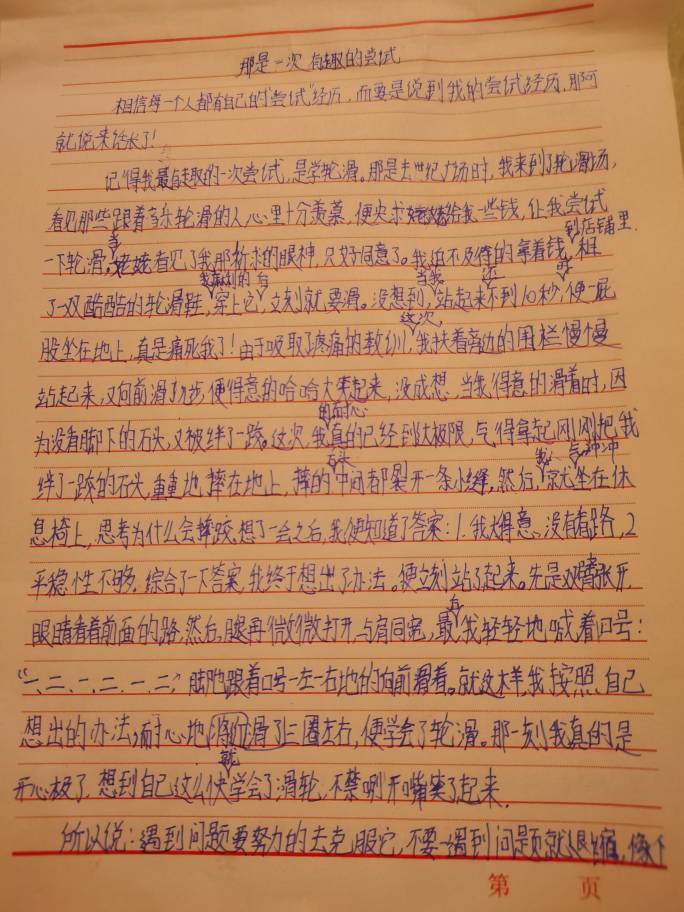 那是一次有趣的尝试
相信每一个人都有自己的“尝试”经历，而要是说到我的尝试经历，那可
就说来话长了！
记得我最有趣的一次尝试，是学轮滑。那是去世纪广场时，我来到了轮滑场，
看见那些跟着音乐轮滑的人心里十分羡慕，便央求姥姥给我一些钱，让我尝试
到店铺里
一下轮滑。姥姥看见了我那祈求的眼神，只好同意了。我迫不及待的拿着钱，租
了一双酷酷的轮滑鞋，穿上它，立刻就要滑。没想到，站起来不到10秒，便一屁
这次，
股坐在地上，真是痛死我了！由于吸取了疼痛的教训，我扶着旁边的围栏慢慢
站起来，又向前滑了几步，便得意的哈哈大笑起来，没成想，当我得意的滑着时，因
的耐心
为没看脚下的石头，又被绊了一跤。这次，我真的已经到达极限，气得拿起刚刚把我
石头
绊了一跤的石头，重重地摔在地上，摔的中间都裂开一条小缝，然后，就坐在休
息椅上，思考为什么会摔跤，想了一会之后，我便知道了答案：1.我太得意、没有看路，2
平稳性不够。综合了一下答案，我终于想出了办法。便立刻站了起来。先是双臂张开，
眼睛看着前面的路，然后，腿再微微打开，与肩同宽，最，我轻轻地喊着口号：
“一、二、一、二、一、二”，脚也跟着口号一左一右地的向前滑着。就这样，我按照自己
想出的办法，耐心地滑了三圈左右，便学会了轮滑。那一刻我真的是
就
开心极了，想到自己这么快学会了滑轮，不禁咧开嘴笑了起来。
所以说：遇到问题要努力的去克服它，不要一遇到问题就退缩，
第 页